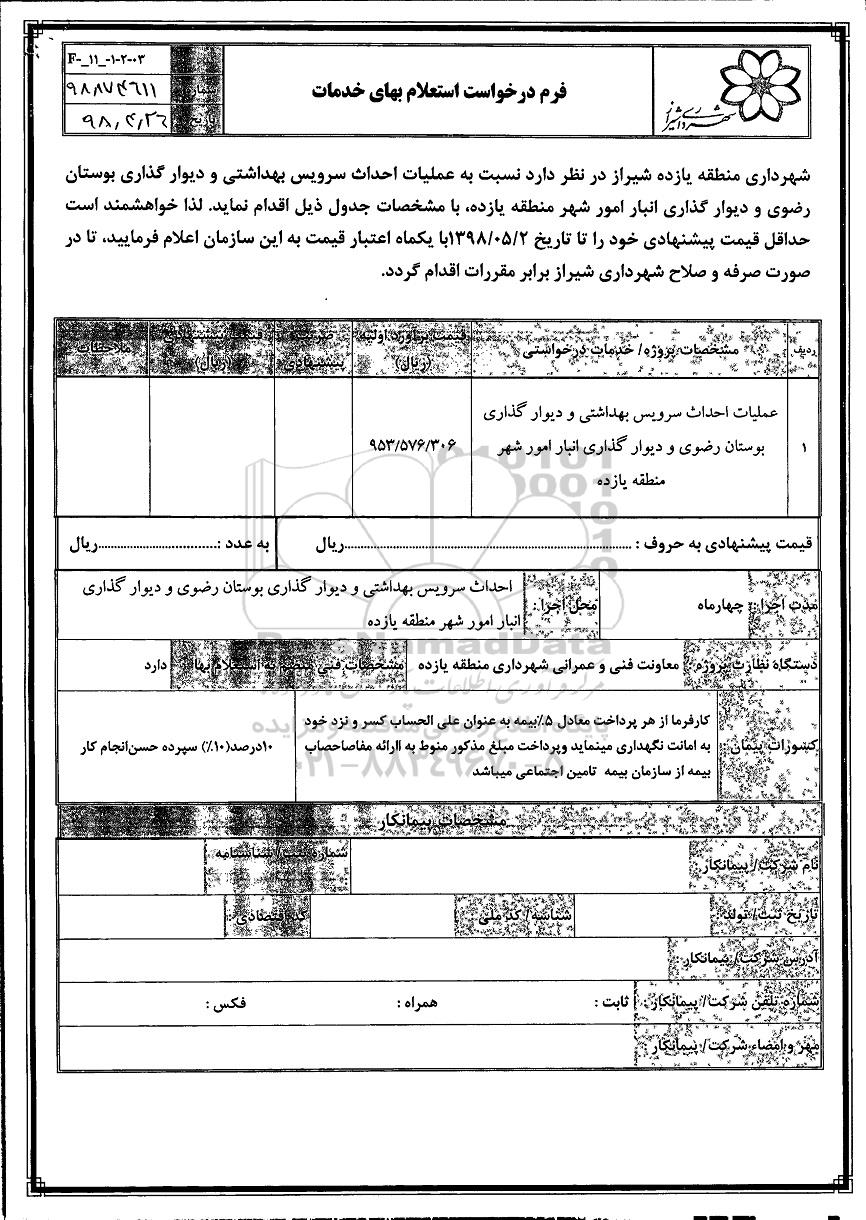 F-_۱۱_-۱-۲-۰۳
شماره ۹۸۸۷۴۶۱۱
تاریخ ۹۸,۴,۲۶
فرم درخواست استعلام بهای خدمات
شهرداری شیراز
شهرداری منطقه یازده شیراز در نظر دارد نسبت به عملیات احداث سرویس بهداشتی و دیوار گذاری بوستان
رضوی و دیوار گذاری انبار امور شهر منطقه یازده، با مشخصات جدول ذیل اقدام نماید. لذا خواهشمند است
حداقل قیمت پیشنهادی خود را تا تاریخ ۱۳۹۸/۰۵/۲با یکماه اعتبار قیمت به این سازمان اعلام فرمایید، تا در
صورت صرفه و صلاح شهرداری شیراز برابر مقررات اقدام گردد.
ردیف مشخصات پروژه/ خدمات درخواستی قیمت برآورد اولیه (ریال) ضریب پیشنهادی قیمت پیشنهادی (ریال) ملاحظات
۱ عملیات احداث سرویس بهداشتی و دیوار گذاری
بوستان رضوی و دیوار گذاری انبار امور شهر
منطقه یازده
۹۵۳/۵۷۶/۳۰۶
قیمت پیشنهادی به حروف : ........................ریال به عدد :........................ریال
مدت اجرا : چهارماه محل اجرا : احداث سرویس بهداشتی و دیوار گذاری بوستان رضوی و دیوار گذاری
انبار امور شهر منطقه یازده
دستگاه نظارت پروژه : معاونت فنی و عمرانی شهرداری منطقه یازده مشخصات فنی منضم به استعلام بها : دارد
کسورات پیمان : کارفرما از هر پرداخت معادل ۵٪بیمه به عنوان علی الحساب کسر و نزد خود
به امانت نگهداری مینماید وپرداخت مبلغ مذکور منوط به اارائه مفاصاحصاب
بیمه از سازمان بیمه تامین اجتماعی میباشد
۱۰درصد(۱۰٪) سپرده حسن‌انجام کار
مشخصات پیمانکار
نام شرکت/ پیمانکار: شماره ثبت/ شناسنامه
تاریخ ثبت/ تولد: شناسه/ کد ملی : کد اقتصادی :
آدرس شرکت/ پیمانکار :
شماره تلفن شرکت/ پیمانکار : ثابت : همراه : فکس :
مهر و امضاء شرکت/ پیمانکار :
ParsNamadData
۰۲۱-۸۸۳۴۹۶۷۰-۵